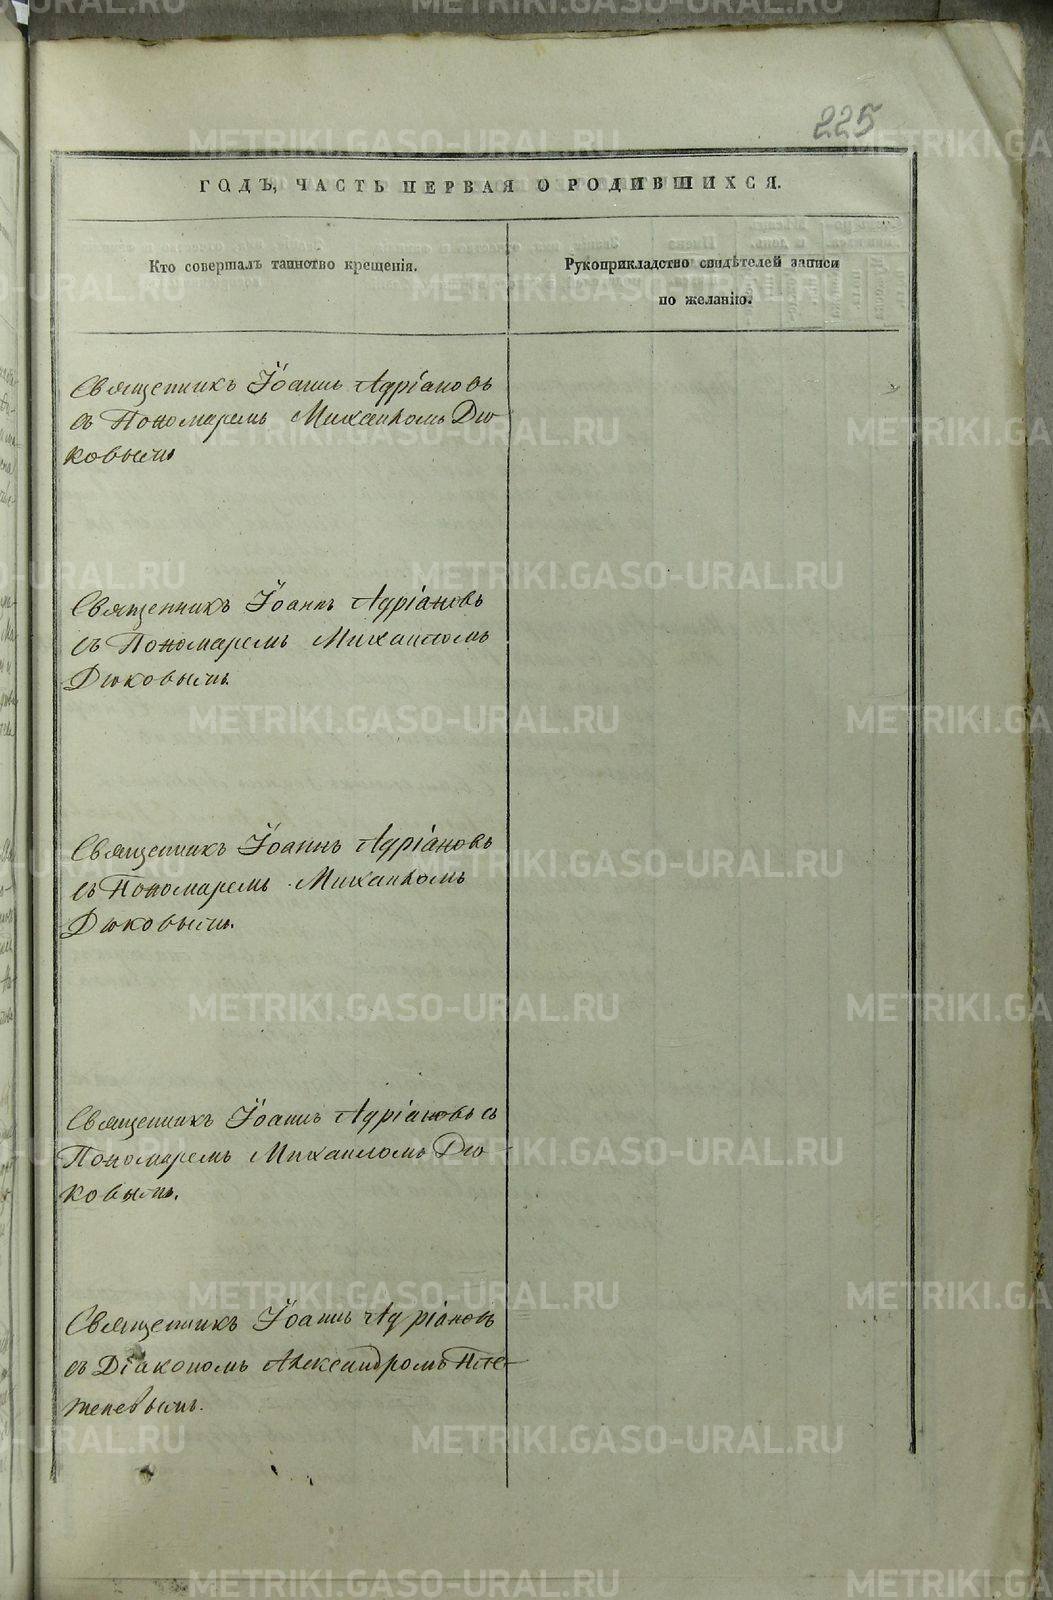 225
ГОДЪ, ЧАСТЬ ПЕРВАЯ О РОДИВШИХСЯ.
Кто совершалъ таинство крещенія.
Рукоприкладство свидѣтелей записи
по желанію.
Священникъ Іоаннъ Адріановъ
съ Пономаремъ Михаиломъ Дю
ковымъ
Священникъ Іоаннъ Адріановъ
съ Пономаремъ Михаиломъ
Дюковымъ.
Священникъ Іоаннъ Адріановъ
съ Пономаремъ Михаиломъ
Дюковымъ.
Священникъ Іоаннъ Адріановъ съ
Пономаремъ Михаиломъ Дю-
ковымъ.
Священникъ Іоаннъ Адріановъ
съ Діакономъ Александромъ
METRIKI.GASO-URAL.RU